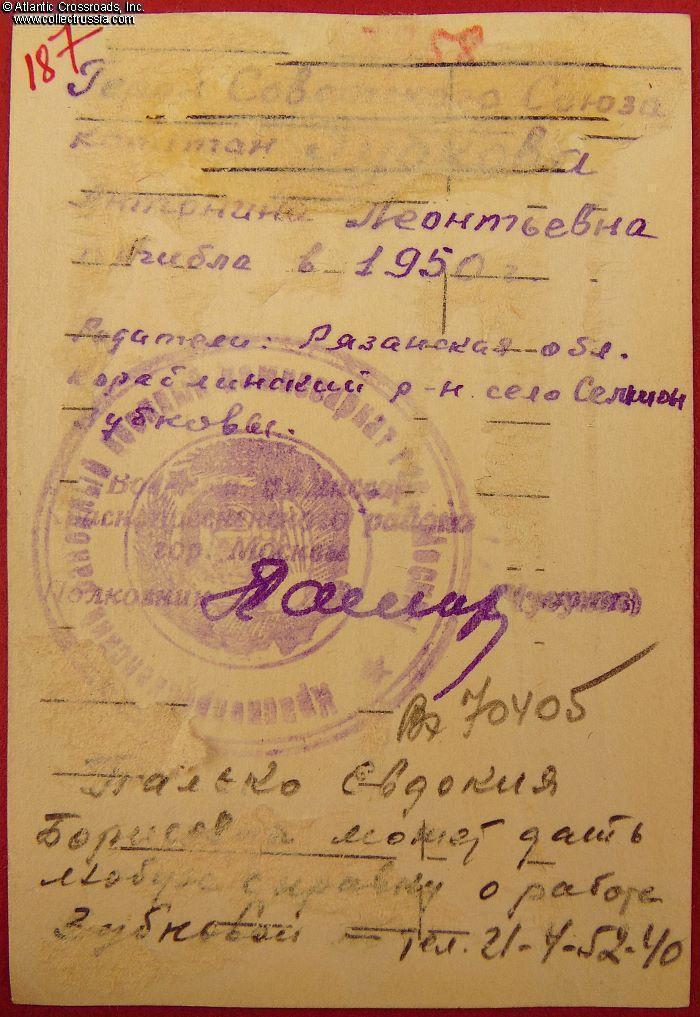 © Atlantic Crossroads, Inc.
www.collectrussia.com
187
58
Герой Советского Союза
капитан Зубкова
Антонина Леонтьевна
погибла в 1950 г
Родители: Рязанская обл.
кораблинский р-н. село Семион
Зубковы.
Краснопресненского района
гор. Москвы
Полковник
Вх 70405
Палько Евдокия
Борисовна может дать
любую справку о работе
Зубковой - тел.